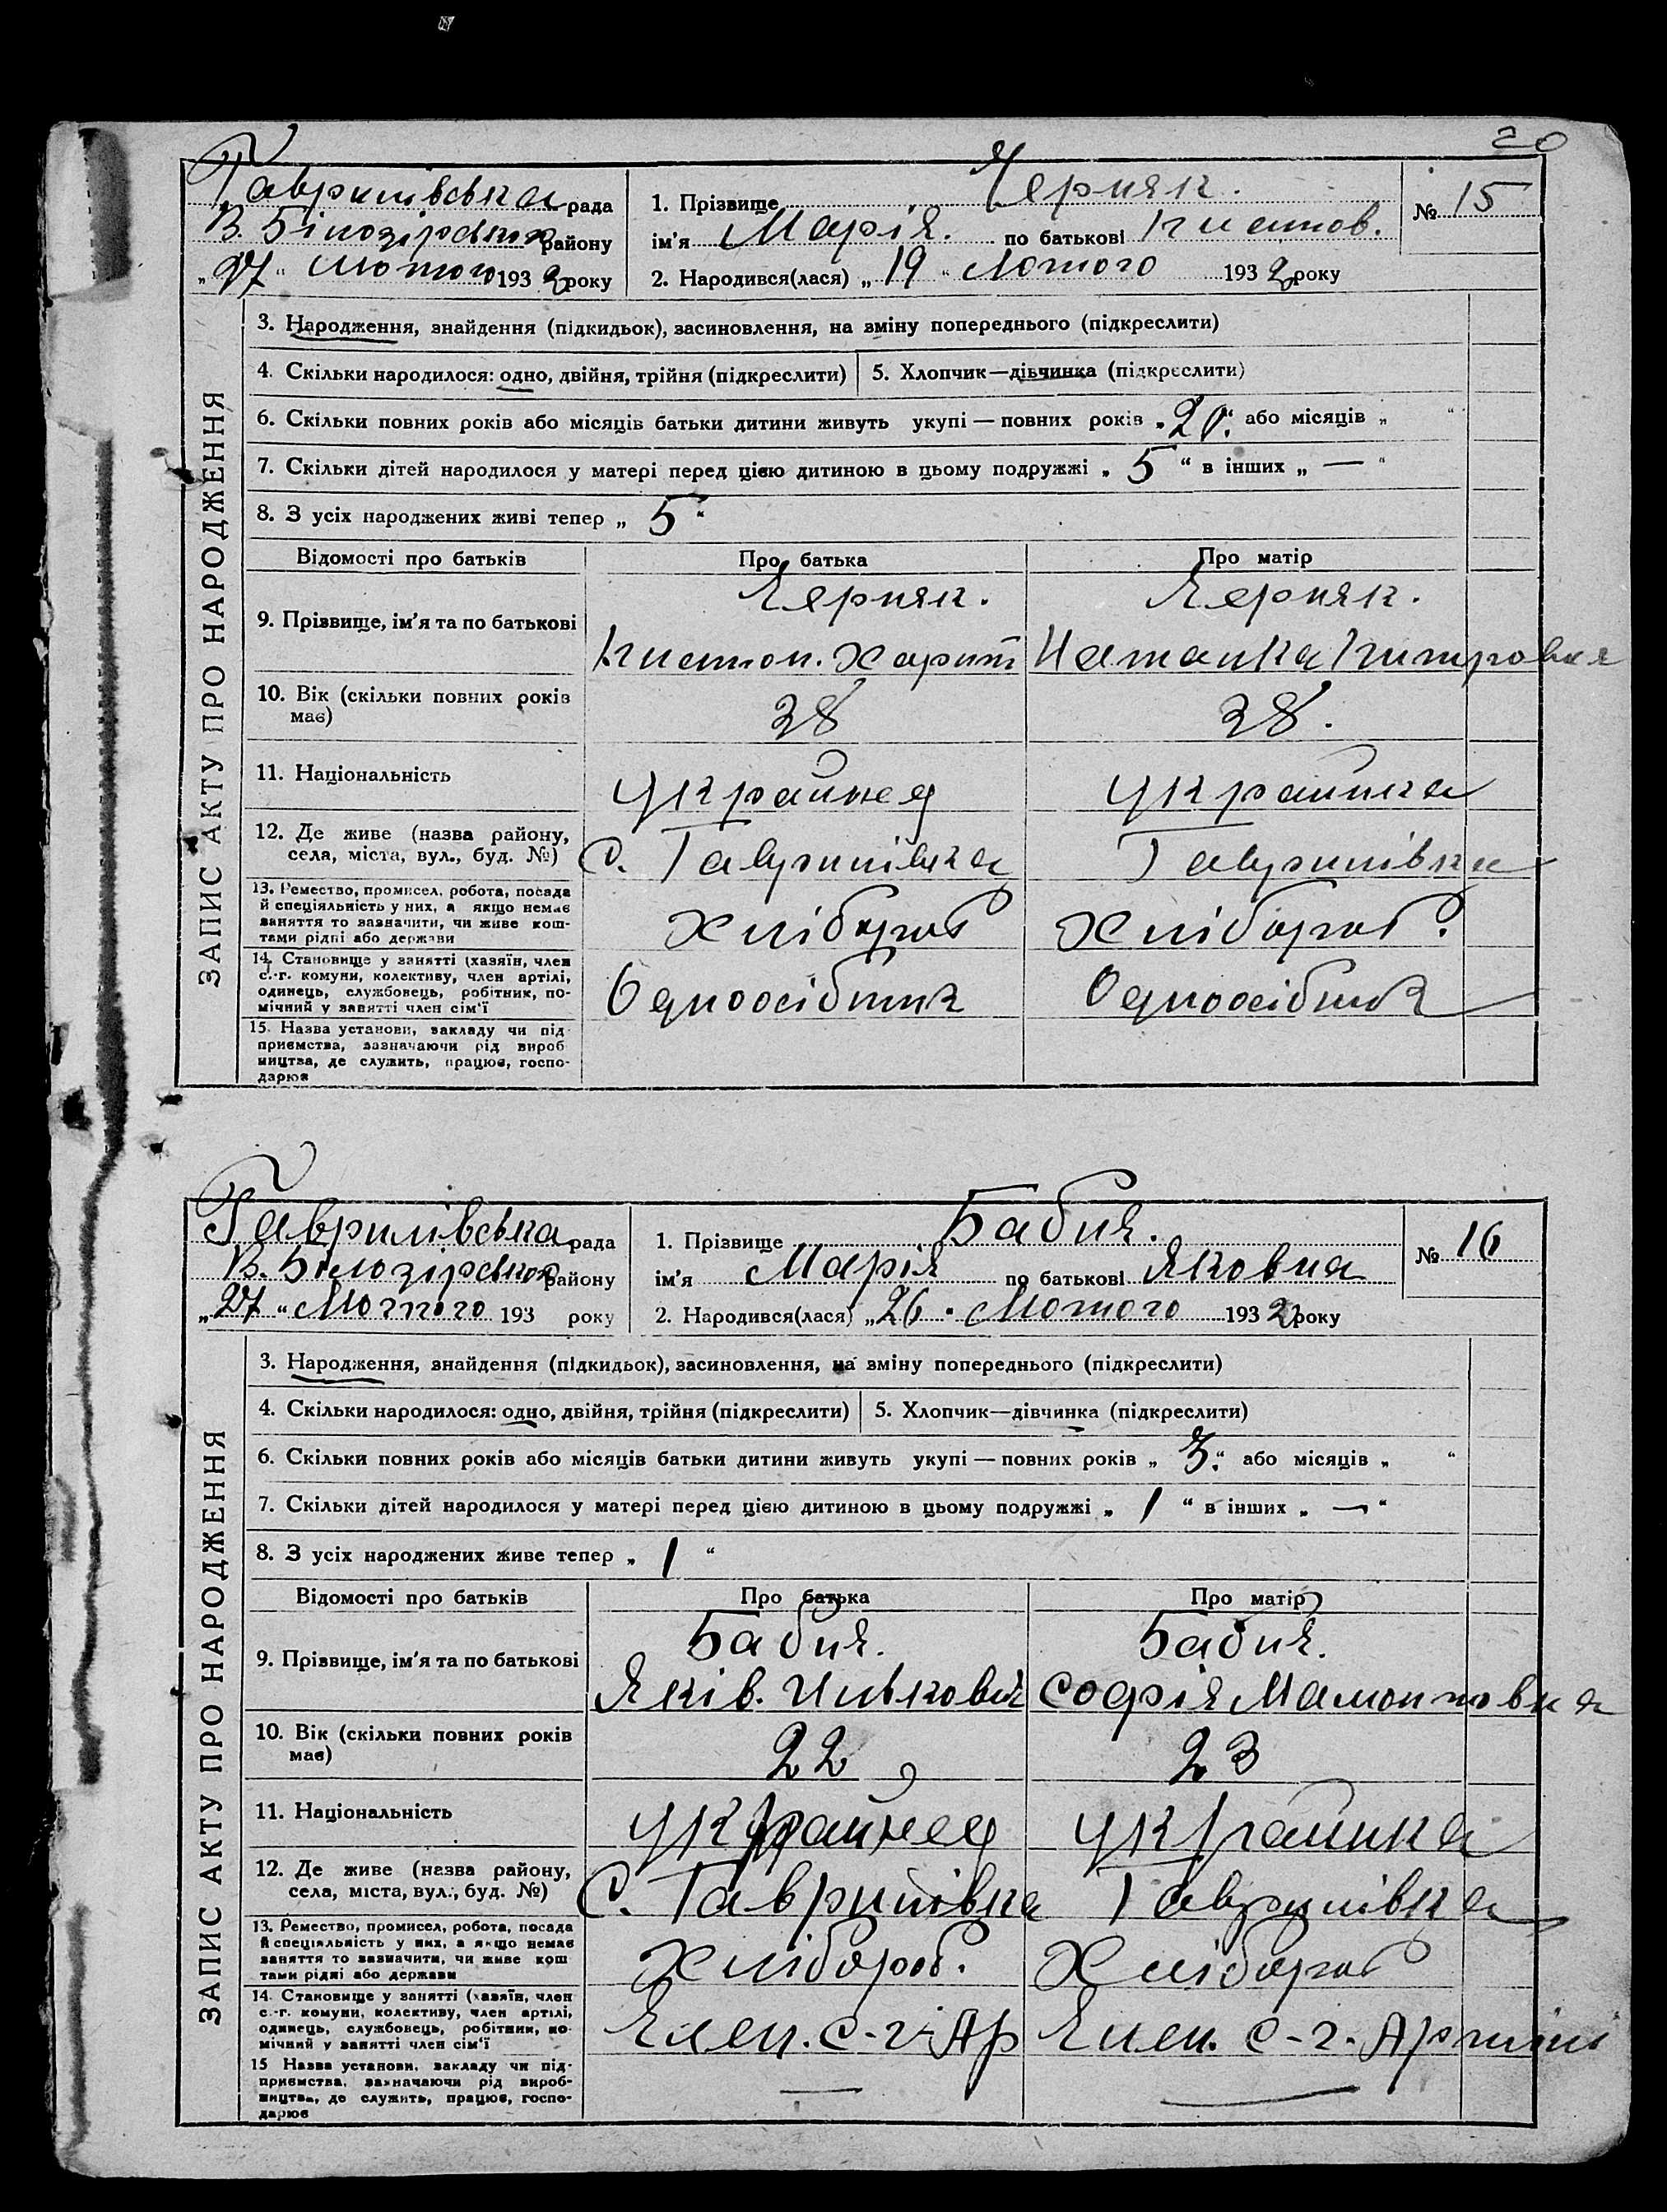 20
Гаврилівська рада
В. Білозірського району
„27“ Лютого 1932 року
1. Прізвище Черняк.
ім’я Марія. по батькові
2. Народився(лася) „19“ Лютого 1932 року
№ 15
ЗАПИС АКТУ ПРО НАРОДЖЕННЯ
3. Народження, знайдення (підкидьок), засиновлення, на зміну попереднього (підкреслити)
4. Скільки народилося: одно, двійня, трійня (підкреслити)
5. Хлопчик—дівчинка (підкреслити)
6. Скільки повних років або місяців батьки дитини живуть укупі — повних років „20“ або місяців „ “
7. Скільки дітей народилося у матері перед цією дитиною в цьому подружжі „ 5 “ в інших „ — “
8. З усіх народжених живі тепер „ 5 “
Відомості про батьків Про батька Про матір
9. Прізвище, ім’я та по батькові
Черняк. Черняк.
Харит Наталка
10. Вік (скільки повних років має)
38 38.
11. Національність
українец українка
12. Де живе (назва району, села, міста, вул., буд. №)
С. Гаврилівка Гаврилівка
13. Ремество, промисел, робота, посада
й спеціяльність у них, а якщо немає
заняття то зазначити, чи живе кош-
тами рідні або держави
Хлібороб Хлібороб.
14. Становище у занятті (хазяїн, член
с.-г. комуни, колективу, член артілі,
одинець, службовець, робітник, по-
мічний у занятті член сім’ї
Одноосібник Одноосібник
15. Назва установи, закладу чи під-
приємства, зазначаючи рід вироб
ництва, де служить, працює, госпо-
дарює
Гаврилівська рада
В. Білозірського району
„27“ Лютого 193 року
1. Прізвище Бабия.
ім’я Марія по батькові Яковна
2. Народився(лася) „26“ Лютого 1932 року
№ 16
ЗАПИС АКТУ ПРО НАРОДЖЕННЯ
3. Народження, знайдення (підкидьок), засиновлення, на зміну попереднього (підкреслити)
4. Скільки народилося: одно, двійня, трійня (підкреслити)
5. Хлопчик—дівчинка (підкреслити)
6. Скільки повних років або місяців батьки дитини живуть укупі — повних років „ 3 “ або місяців „ “
7. Скільки дітей народилося у матері перед цією дитиною в цьому подружжі „ 1 “ в інших „ — “
8. З усіх народжених живе тепер „ 1 “
Відомості про батьків Про батька Про матір
9. Прізвище, ім’я та по батькові
Бабия. Бабия.
Яків. Софія
10. Вік (скільки повних років має)
22 23
11. Національність
українец українка
12. Де живе (назва району, села, міста, вул., буд. №)
С. Гаврилівка Гаврилівка
13. Ремество, промисел, робота, посада
й спеціяльність у них, а якщо немає
заняття то зазначити, чи живе кош
тами рідні або держави
Хлібороб. Хлібороб
14. Становище у занятті (хазяїн, член
с.-г. комуни, колективу, член артілі,
одинець, службовець, робітник, по-
мічний у занятті член сім’ї
Член. с-г. Ар Член. с-г. Артіли
15 Назва установи, закладу чи під-
приємства, зазначаючи рід вироб-
ництва, де служить, працює, госпо-
дарює